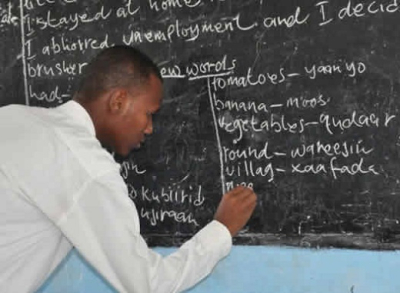 I stayed at home
I abhorred unemployment and I decid
brushes
new words
had-
tomatoes - yaanyo
banana - moos
vegetables - qudaar
round - wareesin
villag - xaafada
kubiirid